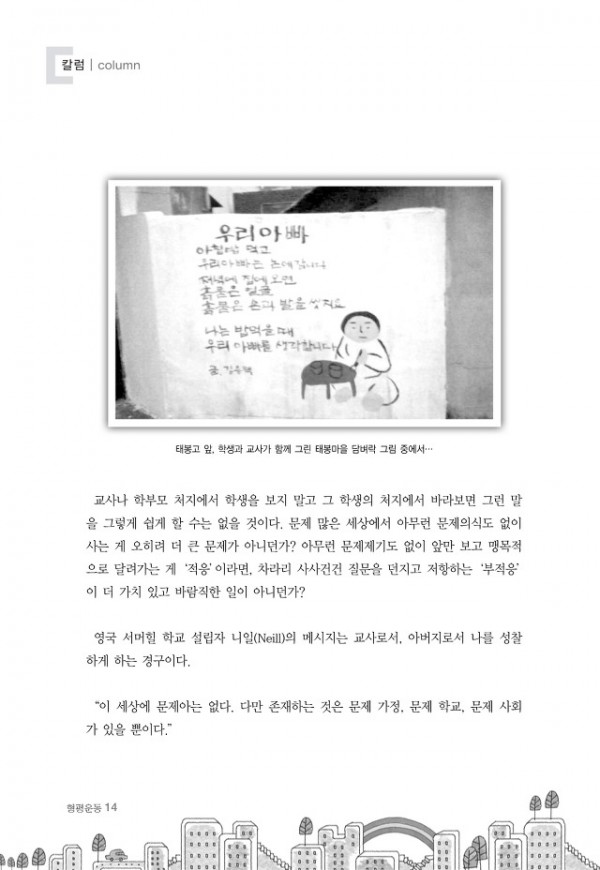 칼럼 | column
우리아빠
아침밥 먹고
우리아빠는 논에갑니다
저녁에 집에오면
흙묻은 얼굴
흙묻은 손과 발을 씻지요
나는 밥먹을때
우리 아빠를 생각합니다
태봉고 앞, 학생과 교사가 함께 그린 태봉마을 담벼락 그림 중에서…
교사나 학부모 처지에서 학생을 보지 말고 그 학생의 처지에서 바라보면 그런 말
을 그렇게 쉽게 할 수는 없을 것이다. 문제 많은 세상에서 아무런 문제의식도 없이
사는 게 오히려 더 큰 문제가 아니던가? 아무런 문제제기도 없이 앞만 보고 맹목적
으로 달려가는 게 ‘적응’이라면, 차라리 사사건건 질문을 던지고 저항하는 ‘부적응’
이 더 가치 있고 바람직한 일이 아니던가?
영국 서머힐 학교 설립자 니일(Neill)의 메시지는 교사로서, 아버지로서 나를 성찰
하게 하는 경구이다.
“이 세상에 문제아는 없다. 다만 존재하는 것은 문제 가정, 문제 학교, 문제 사회
가 있을 뿐이다.”
형평운동 14